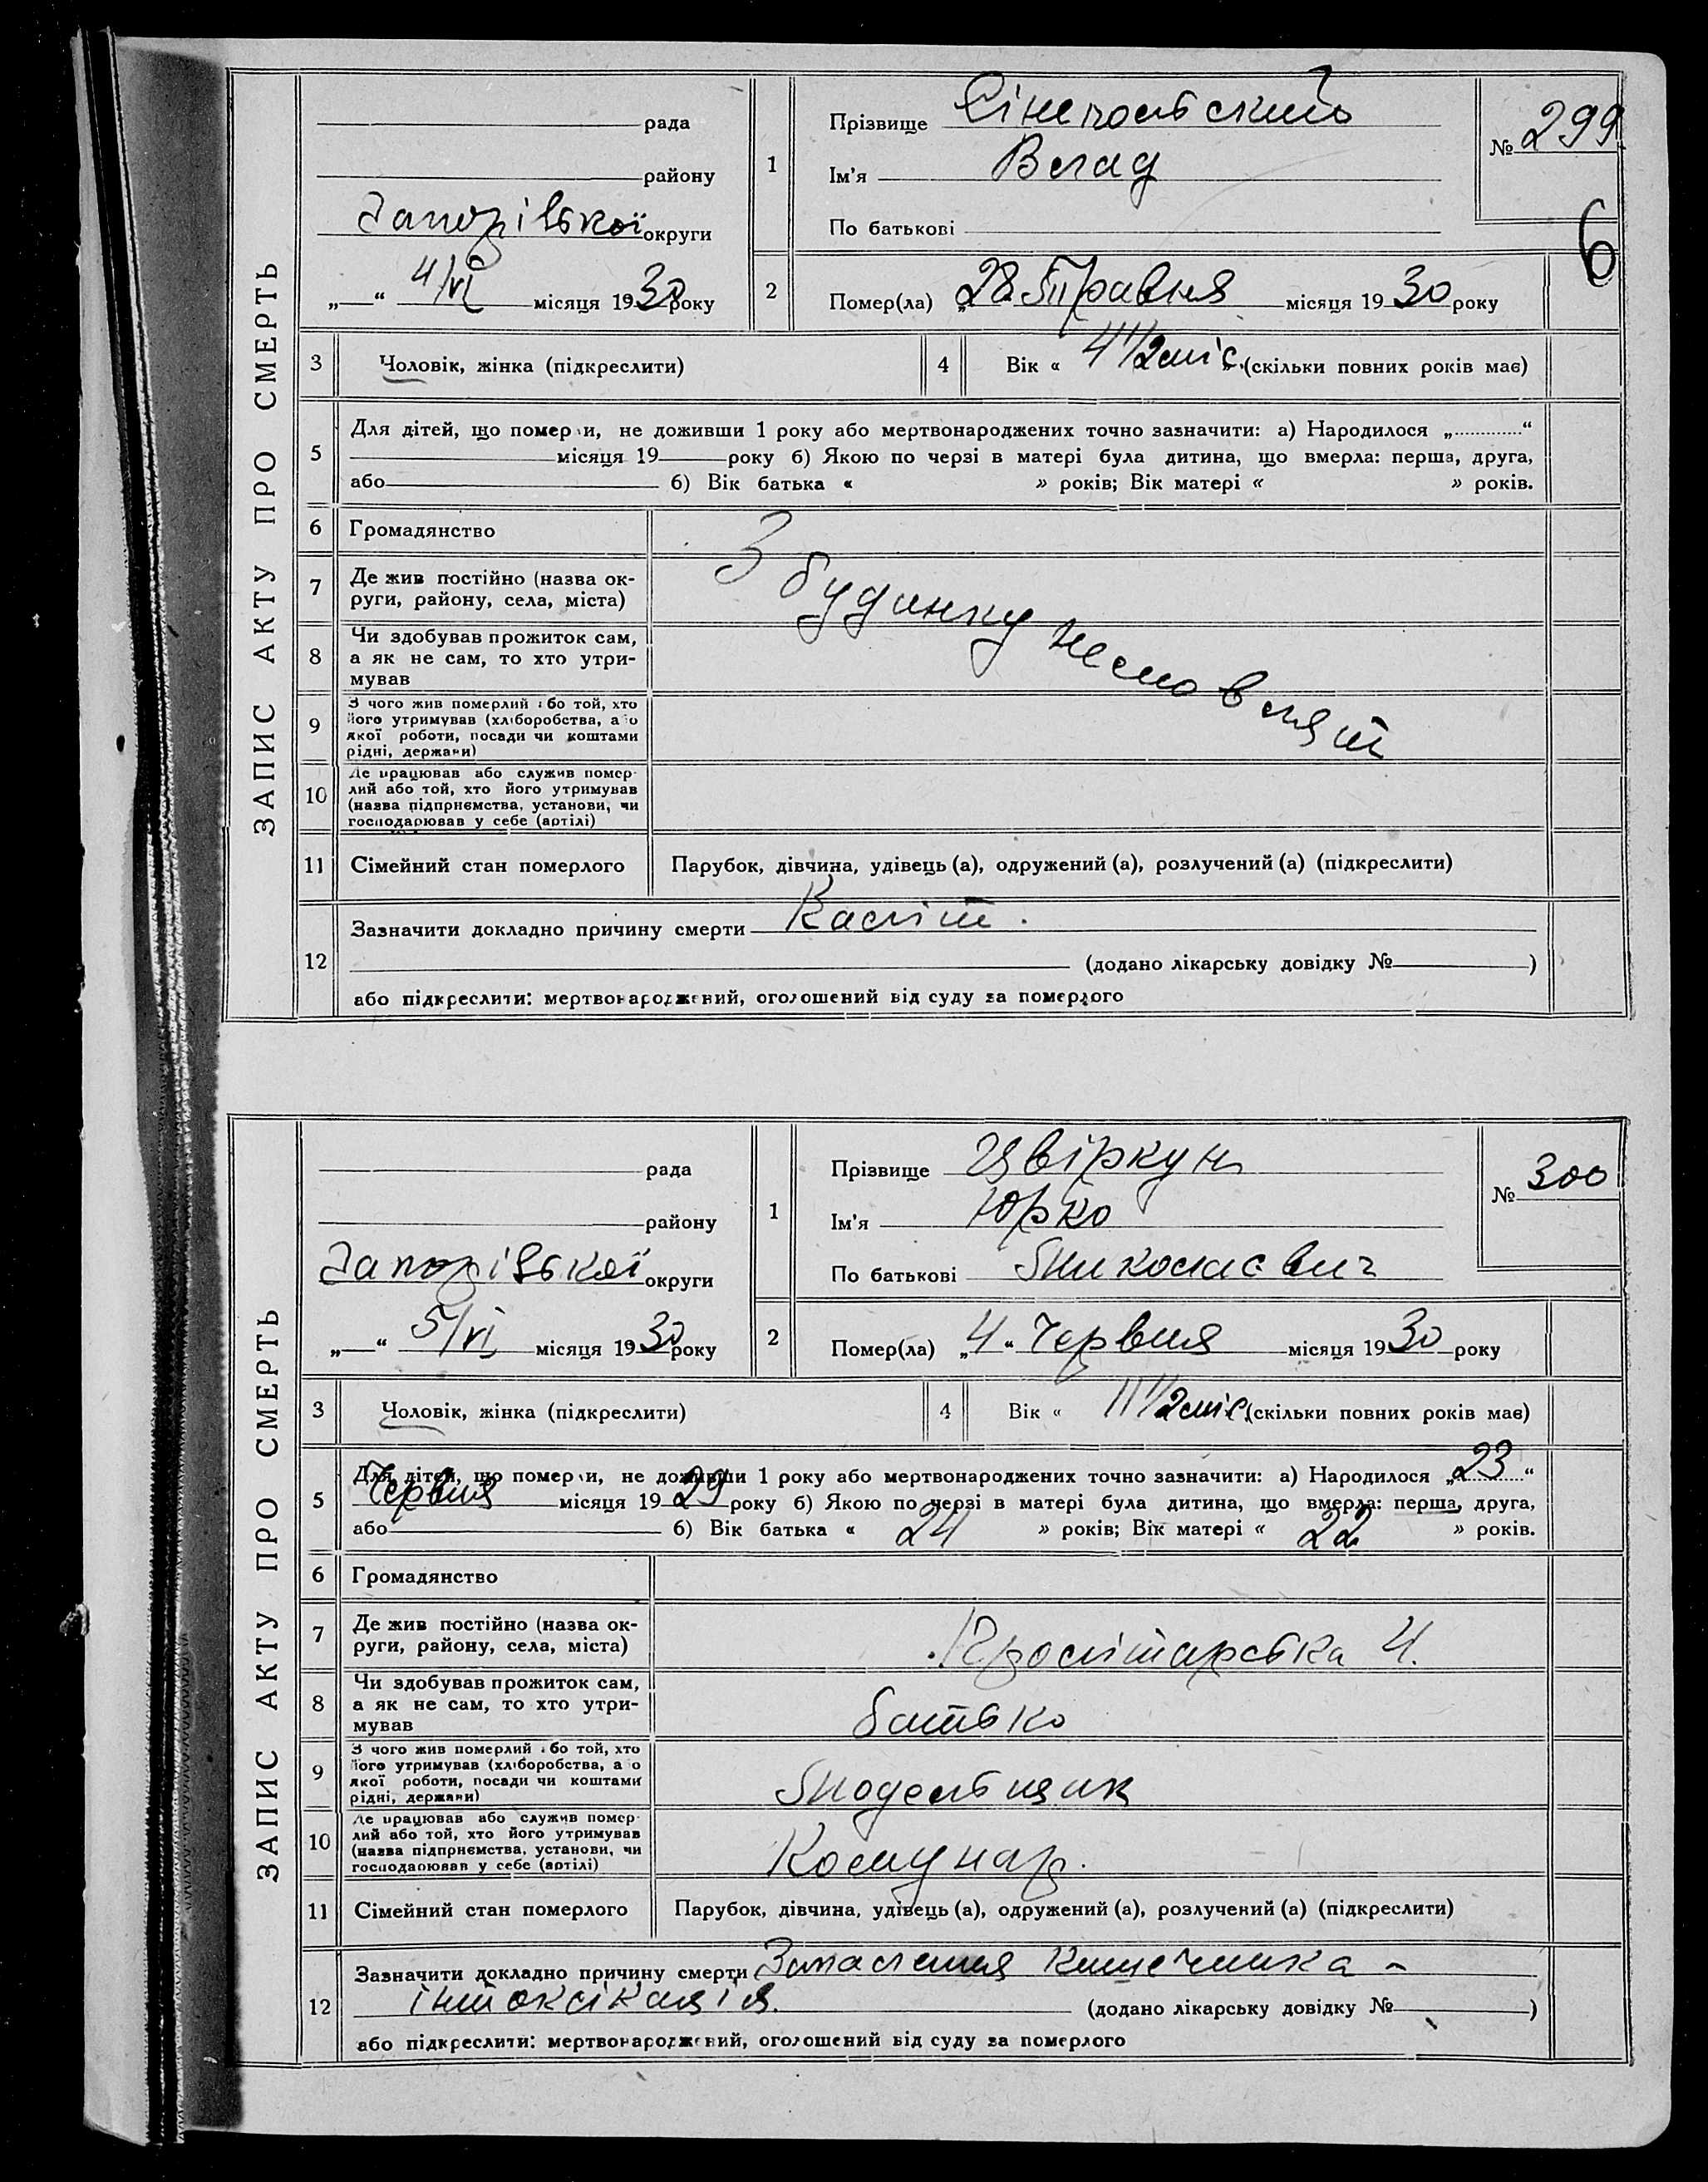 ЗАПИС АКТУ ПРО СМЕРТЬ
рада
району
Запорізької округи
„ “ 4/VI місяця 1930 року
1
Прізвище Сінепольський
Ім'я Влад
По батькові
№ 299
6
2
Помер(ла) „28“ Травня місяця 1930 року
3 Чоловік, жінка (підкреслити)
4 Вік « 4 1/2 міс. (скільки повних років має)
5
Для дітей, що померли, не доживши 1 року або мертвонароджених точно зазначити: а) Народилося „ “
місяця 19 року б) Якою по черзі в матері була дитина, що вмерла: перша, друга,
або б) Вік батька « » років; Вік матері « » років.
6 Громадянство
З будинку немовлят
7
Де жив постійно (назва ок-
руги, району, села, міста)
8
Чи здобував прожиток сам,
а як не сам, то хто утри-
мував
9
З чого жив померлий або той, хто
його утримував (хліборобства, або
якої роботи, посади чи коштами
рідні, держави)
10
Де працював або служив помер-
лий або той, хто його утримував
(назва підприємства, установи, чи
господарював у себе (артілі)
11 Сімейний стан померлого Парубок, дівчина, удівець (а), одружений (а), розлучений (а) (підкреслити)
12
Зазначити докладно причину смерти Каліт.
(додано лікарську довідку № )
або підкреслити: мертвонароджений, оголошений від суду за померлого
ЗАПИС АКТУ ПРО СМЕРТЬ
рада
району
Запорізької округи
„ “ 5/VI місяця 1930 року
1
Прізвище Цвіркун
Ім'я Юрко
По батькові Миколаєвич
№ 300
2
Помер(ла) „4“ Червня місяця 1930 року
3 Чоловік, жінка (підкреслити)
4 Вік « 11 1/2 міс. (скільки повних років має)
5
Для дітей, що померли, не доживши 1 року або мертвонароджених точно зазначити: а) Народилося „23“
Червня місяця 1929 року б) Якою по черзі в матері була дитина, що вмерла: перша, друга,
або б) Вік батька « 24 » років; Вік матері « 22 » років.
6 Громадянство
7
Де жив постійно (назва ок-
руги, району, села, міста)
Пролітарська 4.
8
Чи здобував прожиток сам,
а як не сам, то хто утри-
мував
батько
9
З чого жив померлий або той, хто
його утримував (хліборобства, або
якої роботи, посади чи коштами
рідні, держави)
Модельщик
10
Де працював або служив помер-
лий або той, хто його утримував
(назва підприємства, установи, чи
господарював у себе (артілі)
Комунар.
11 Сімейний стан померлого Парубок, дівчина, удівець (а), одружений (а), розлучений (а) (підкреслити)
12
Зазначити докладно причину смерти Запалення Кишечника -
інтоксікація. (додано лікарську довідку № )
або підкреслити: мертвонароджений, оголошений від суду за померлого